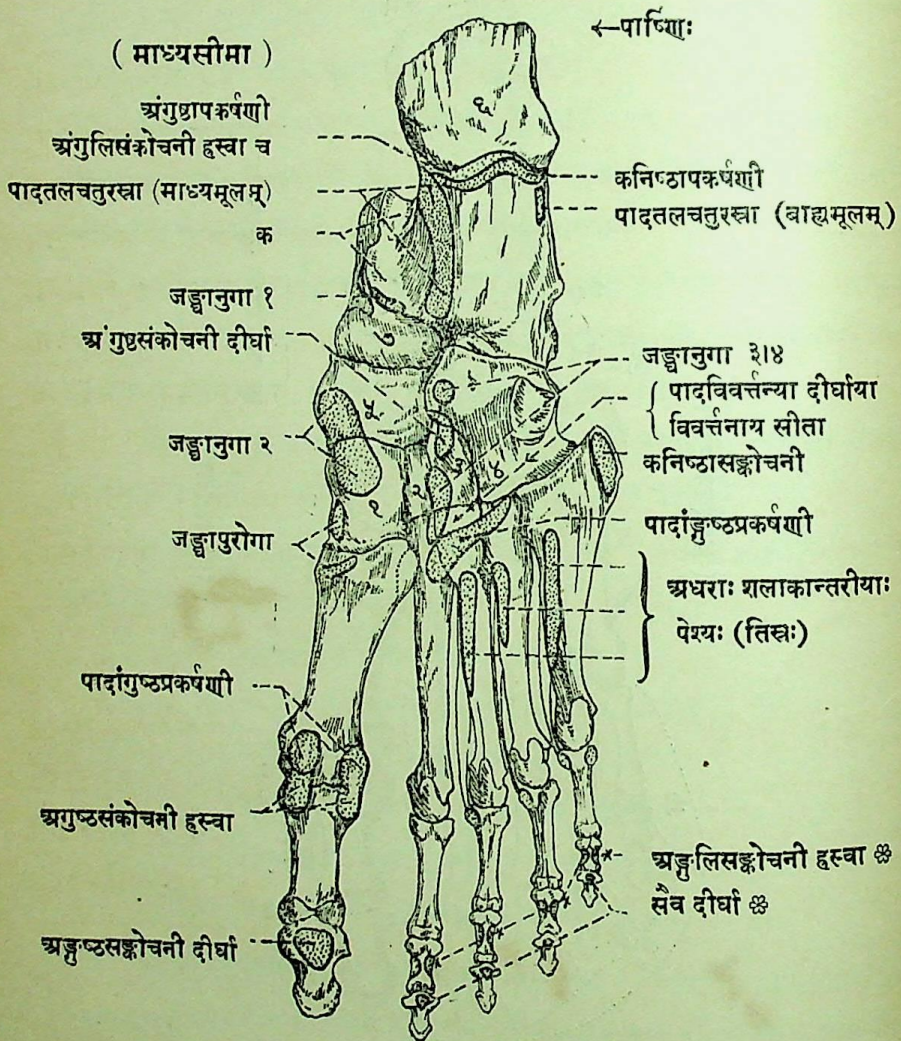 ←पार्ष्णिः
( माध्यसीमा )
अंगुष्ठापकर्षणी
अंगुलिसंकोचनी ह्रस्वा च
पादतलचतुरस्रा (माध्यमूलम्)
क
जङ्घानुगा १
अंगुष्ठसंकोचनी दीर्घा
जङ्घानुगा २
जङ्घापुरोगा
पादांगुष्ठप्रकर्षणी
अगुष्ठसंकोचनी ह्रस्वा
अङ्गुष्ठसङ्कोचनी दीर्घा
कनिष्ठापकर्षणी
पादतलचतुरस्रा (बाह्यमूलम्)
जङ्घानुगा ३।४
पादविवर्त्तन्या दीर्घाया
विवर्त्तनाय सीता
कनिष्ठासङ्कोचनी
पादांङ्गुष्ठप्रकर्षणी
अधराः शलाकान्तरीयाः
पेश्यः (तिस्रः)
अङ्गुलिसङ्कोचनी ह्रस्वा ❀
सैव दीर्घा ❀
६
७
५
४
३
२
१